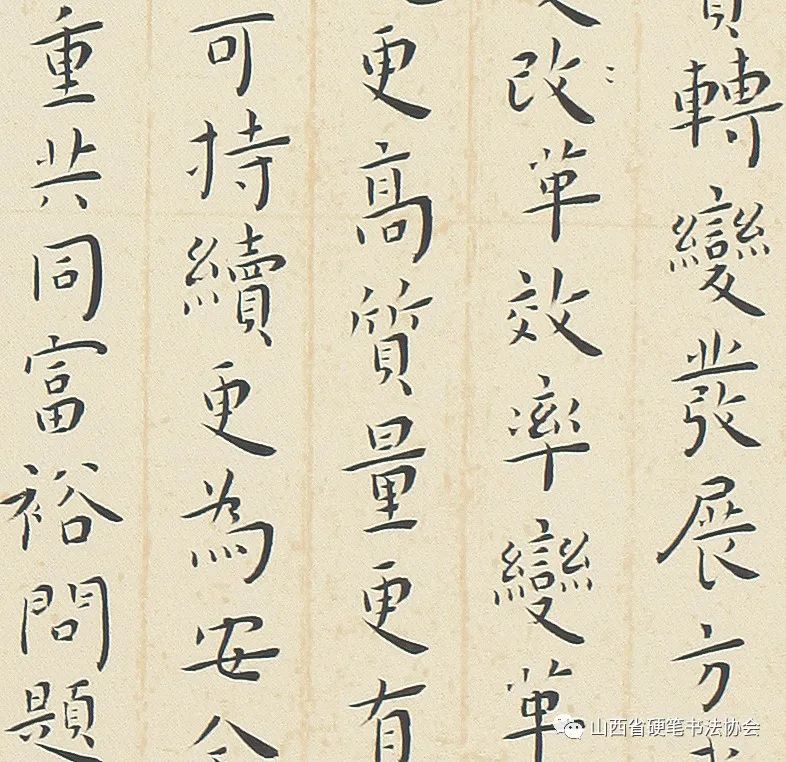 轉變發展方
改革效率變革
更高質量更有
可持續更為安全
重共同富裕問題
山西省硬笔书法协会